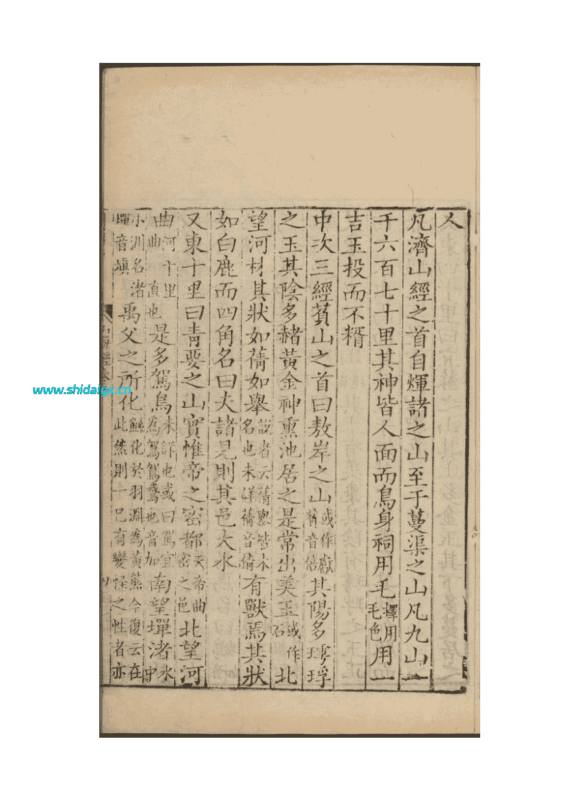 人
凡濟山經之首自煇諸之山至于蔓渠之山凡九山一
千六百七十里其神皆人面而鳥身祠用毛擇用毛色用一
吉玉投而不糈
中次三經萯山之首曰敖岸之山或作獻萯音倍其陽多㻬琈
之玉其陰多赭黃金神熏池居之是常出美玉或作石北
望河林其狀如蒨如舉說者云蒨舉皆木名也未詳蒨音倩有獸焉其狀
如白鹿而四角名曰夫諸見則其邑大水
又東十里曰青要之山實惟帝之密都天帝曲密之邑北望河
曲河千里一曲一直也是多駕鳥未詳也或曰駕宜為鴐鴐鵝也音加南望墠渚水中
小洲名渚墠音填禹父之所化鯀化於羽淵為黃熊今復云在此然則一已有變怪之性者亦
www.shidaigx.cn